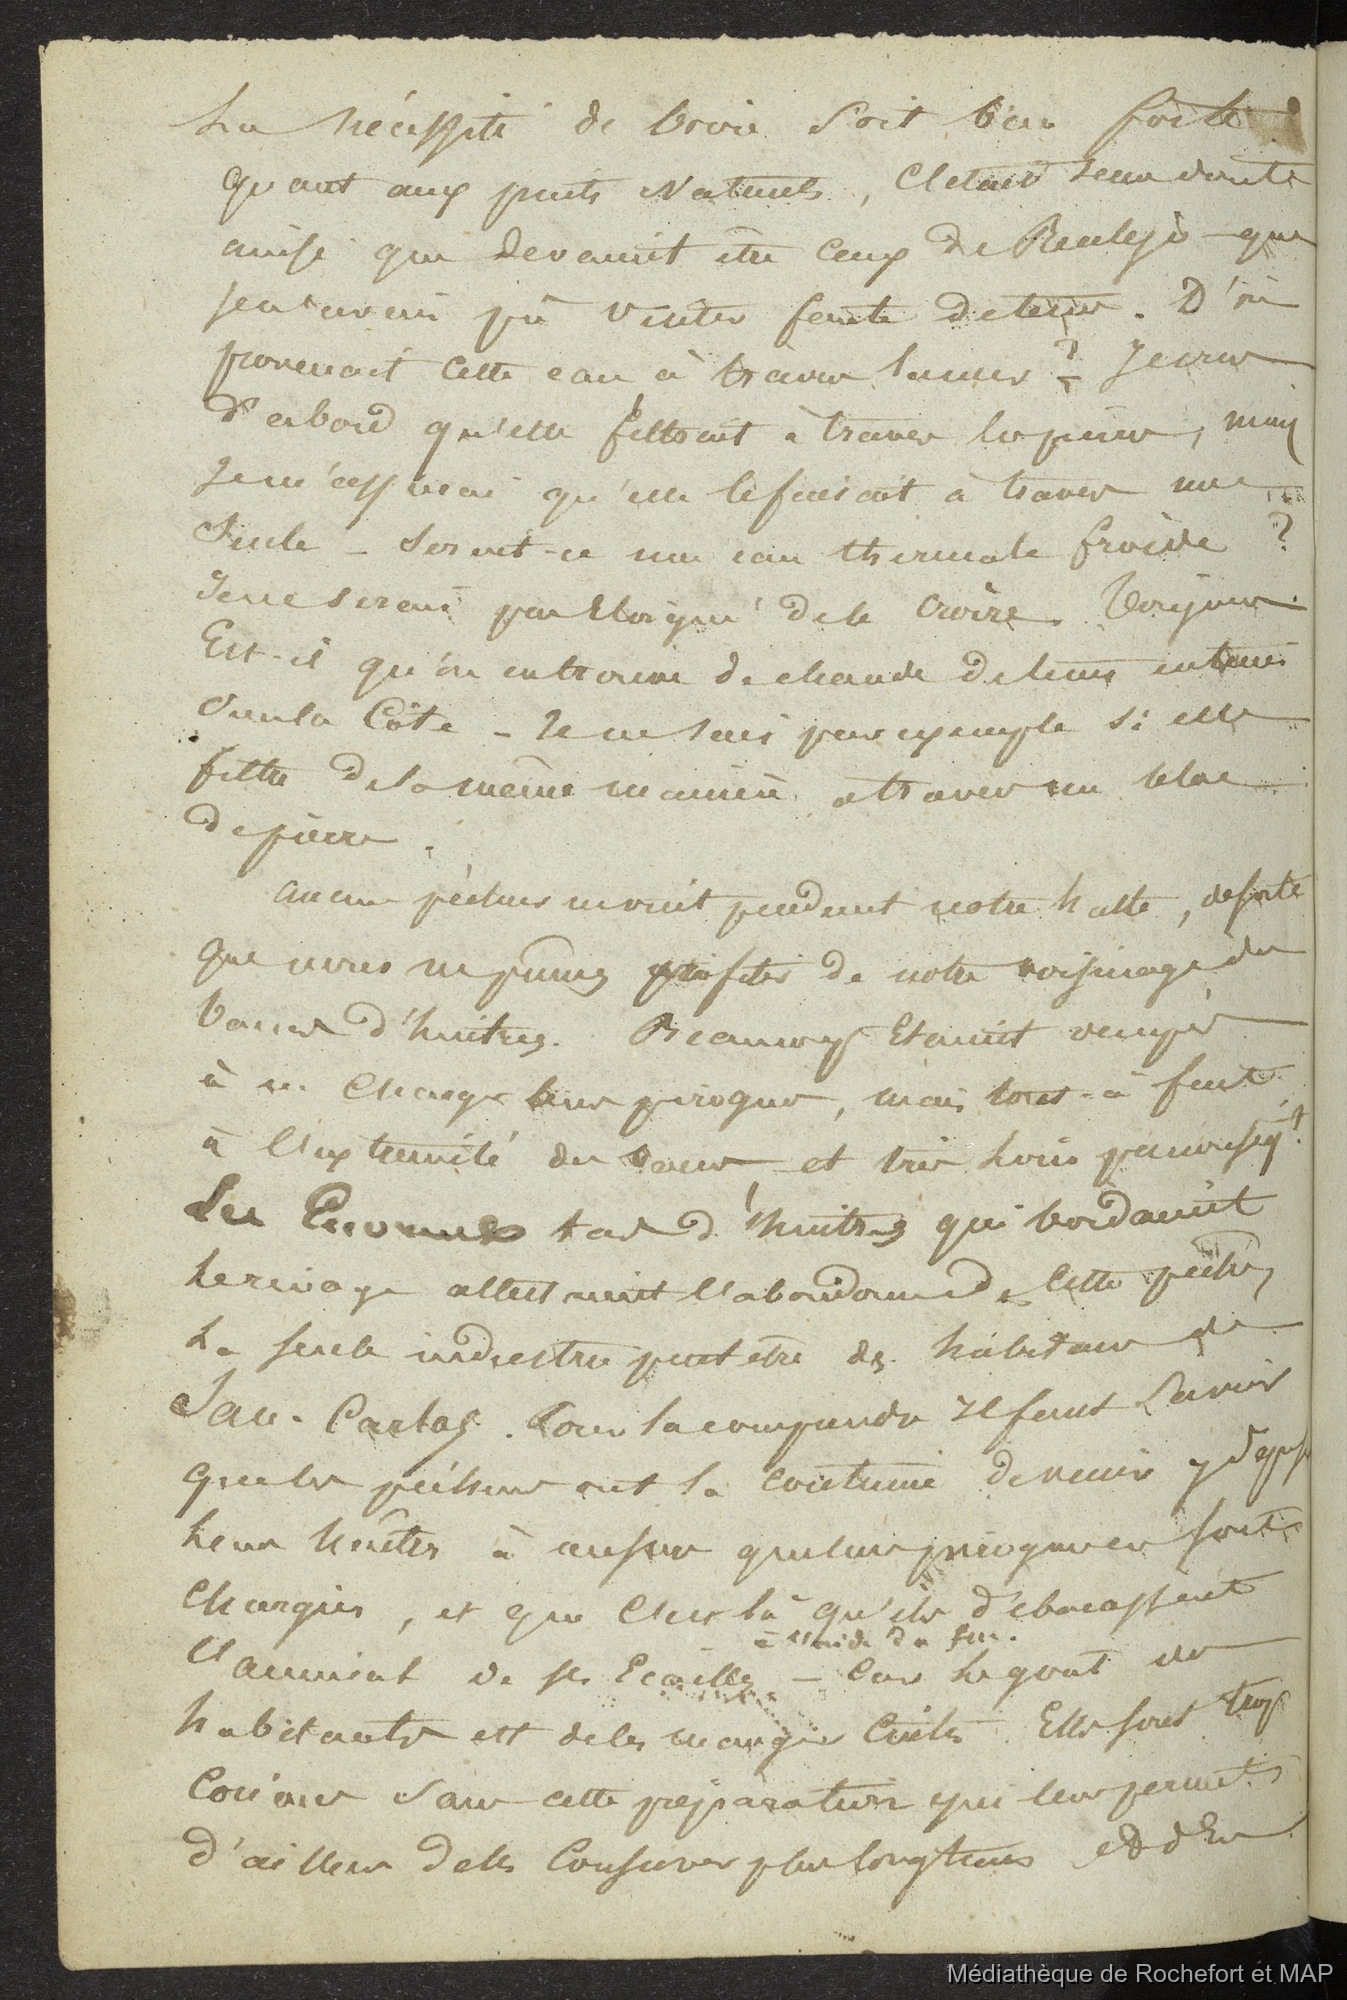 La nécessité de boire soit bien forte.
quant aux puits Naturels, C'etait sans doute
ainsi que devaient être ceux de Realejo que
j'en avais pû visiter faute de tems. D'où
provenait cette eau à travers la mer ? Je crus
d'abord qu'elle filtrait à travers les pierres, mais
Je m'assurai qu'elle le faisait à travers une
Seule _ Serait-ce une eau thermale froide ?
Je ne serais pas Eloigné de le croire. Toujours
Est-il qu'on en trouve de chaude de tems en tems
Sur la Côte _ Je ne sais par exemple si elle
filtre de la même manière à travers un bloc
de pierre.
aucun pêcheur ne vint pendant notre halte, de sorte
que nous ne pûmes profiter de notre voisinage des
bancs d'huitres. Beaucoup Etaient occupés
à en charger leurs pirogues, mais tout-à-fait
à l'extremité du banc et très loin par conséqt.
Les Enormes tas d'huitres qui bordaient
le rivage attestaient l'abondance de cette pêche,
La seule industrie peut être des habitans de
San-Carlos. Pour la comprendre Il faut Savoir
que les pêcheurs ont la coutume de venir y déposer
leurs huitres à mesure que leurs pirogues en sont
chargées, et que c'est là qu'ils débarassent
à l'aide du feu.
l'animal de ses Ecailles _ Car le gout des
habitants est de les manger cuites Elles sont trop
Coriaces sans cette préparation qui leur permet
d'ailleurs de les conserver plus longtems et de les
Médiathèque de Rochefort et MAP